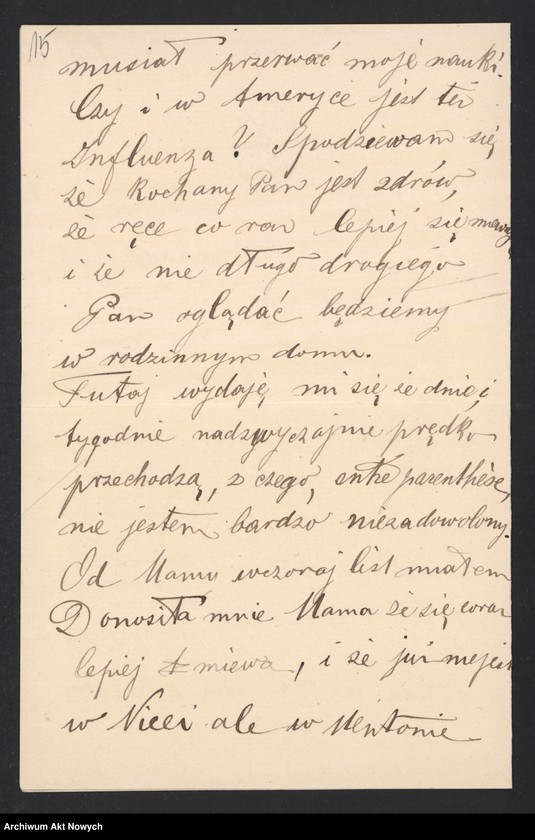 15
musiał przerwać moje nauki.
Czy i w Ameryce jest też
Influenza? Spodziewam się,
że Kochany Pan jest zdrów,
że ręce co raz lepiej się mewają
i że nie długo drogiego
Pan oglądać będziemy
w rodzinnym domu.
Tutaj wydaję mi się że dnie i
tygodnie nadzwyczajnie prędko
przechodzą, z czego, entre parenthèse,
nie jestem bardzo niezadowolony.
Od Mamy wczoraj list miałem
Donosiła mnie Mama że się coraz
lepiej miewa, i że już nie jest
w Nicei ale w Mentonie
Archiwum Akt Nowych